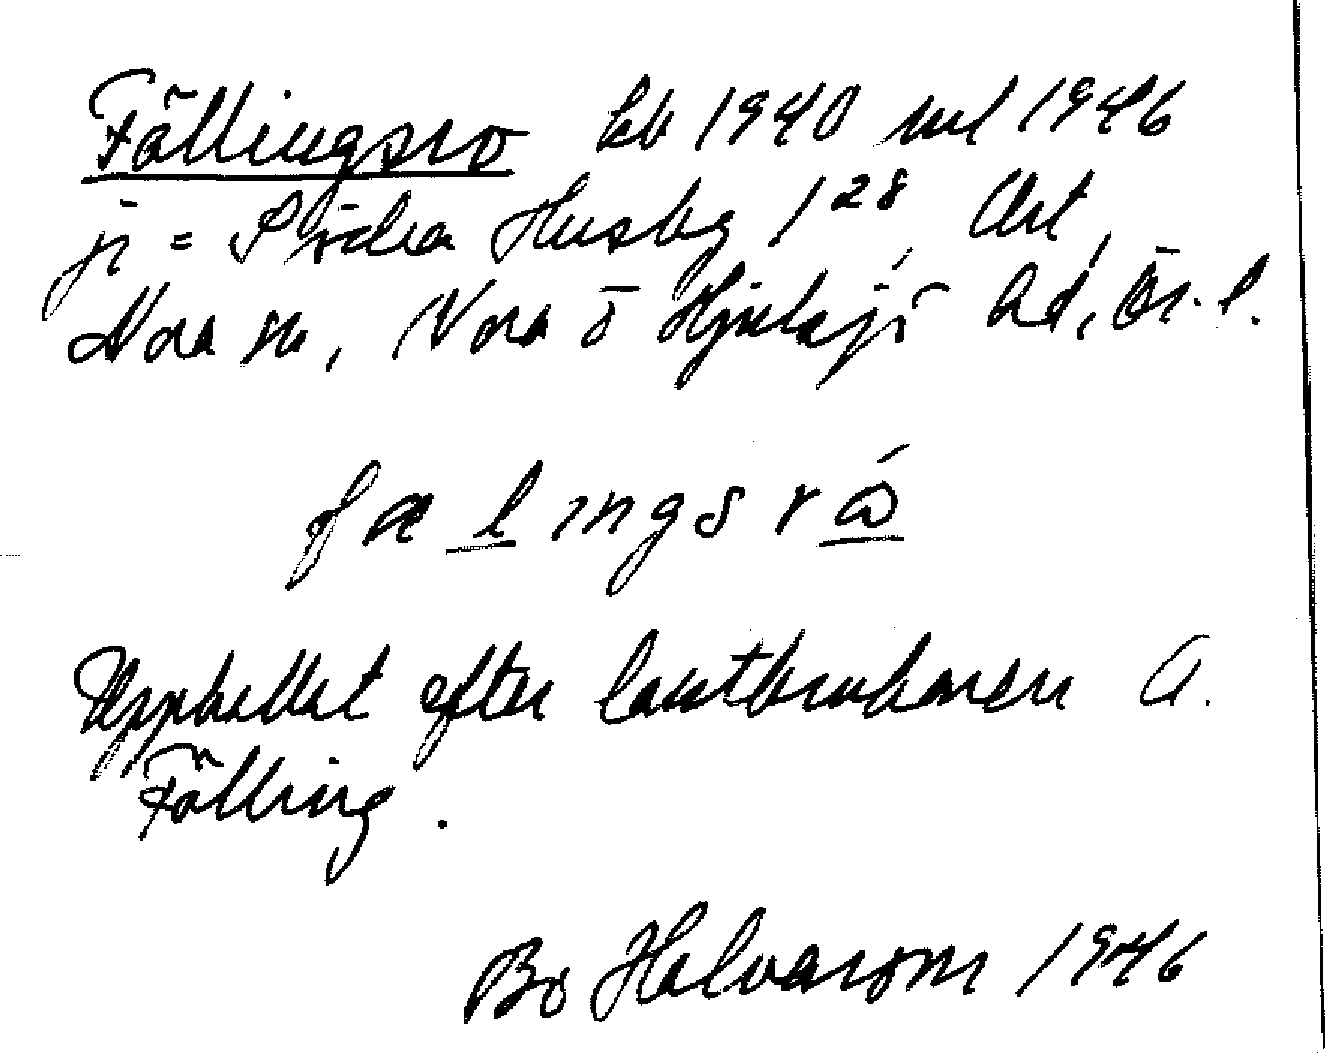 Fällingsro kb 1940 ml 1946
jr = Södra Husby 1²⁸, Art,
Nora sn, Nora o Hjulsjö bd, Ör. l.
fælingsrǻ
Uppkallat efter lantbrukaren A.
Fälling.
Bo Halvarson 1946